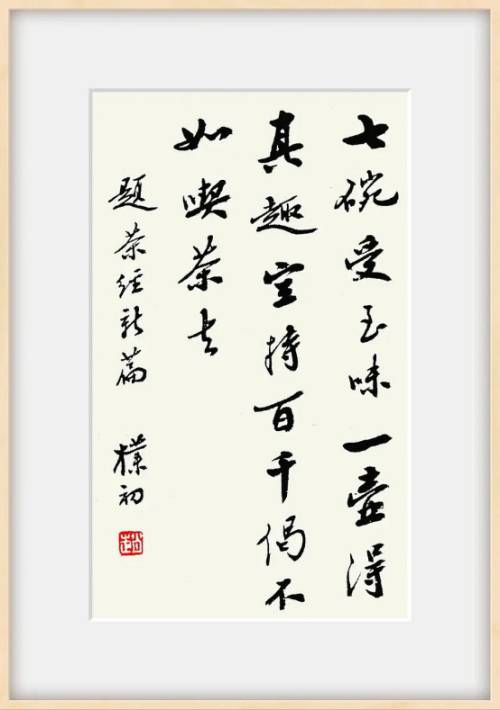 七碗受至味一壶得
真趣空持百千偈不
如喫茶去
题茶经新篇 朴初